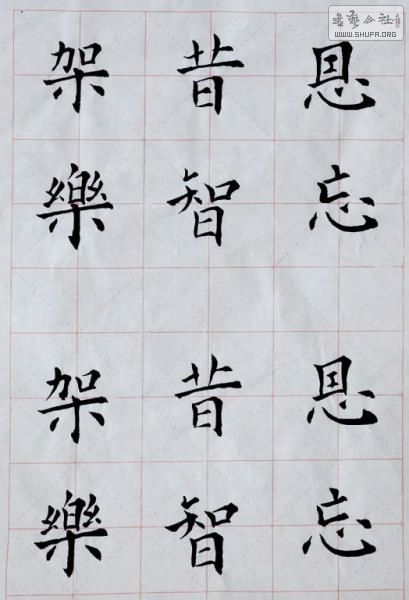 恩忘恩忘
昔智昔智
架樂架樂
書藝公社
WWW.SHUFA.ORG